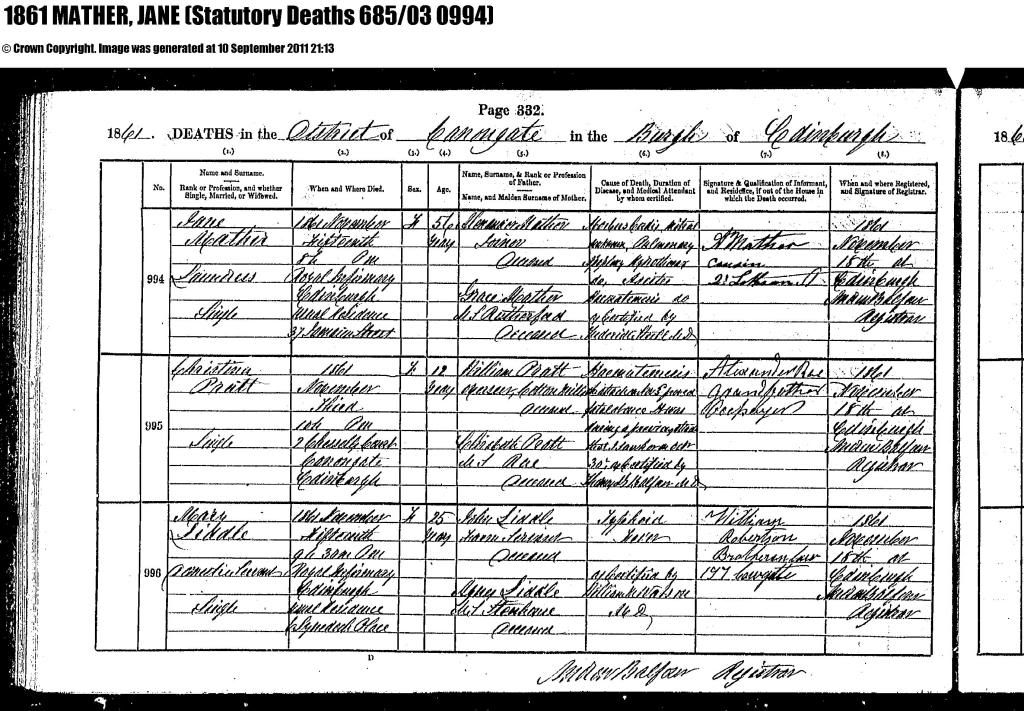 1861 MATHER, JANE (Statutory Deaths 685/03 0994)
© Crown Copyright. Image was generated at 10 September 2011 21:13
Page 332.
1861. DEATHS in the District of Canongate in the Burgh of Edinburgh
186
(1.) (2.) (3.) (4.) (5.) (6.) (7.) (8.)
No.
Name and Surname.
Rank or Profession, and whether Single, Married, or Widowed.
When and Where Died.
Sex.
Age.
Name, Surname, & Rank or Profession of Father.
Name, and Maiden Surname of Mother.
Cause of Death, Duration of Disease, and Medical Attendant by whom certified.
Signature & Qualification of Informant, and Residence, if out of the House in which the Death occurred.
When and where Registered, and Signature of Registrar.
994
Jane
Mather
Laundress
Single
1861 November
Fifteenth
8h PM
Royal Infirmary
Edinburgh
usual residence
37 Jamaica Street
F
56
years
Alexander Mather
Joiner
Deceased
Grace Mather
M.S. Rutherford
Deceased
Morbus Cordis
Pulmonary
Ascites
Haematemesis
as Certified by
M.D.
Mather
cousin
1861
November
18th at
Edinburgh
Andrew Balfour
Registrar
995
Christina
Pratt
Single
1861
November
Third
10h PM
2 Chessels Court
Canongate
Edinburgh
F
12
years
William Pratt
Overseer, Cotton Mill
deceased
Elizabeth Pratt
M.S. Rae
deceased
Haematemesis
as Certified by
Balfour M.D.
Alexander Rae
Grandfather
1861
November
18th at
Edinburgh
Andrew Balfour
Registrar
996
Mary
Liddle
Domestic Servant
Single
1861 November
Fifteenth
9h 30m PM
Royal Infirmary
Edinburgh
usual residence
F
25
years
John Liddle
Farm Servant
deceased
Agnes Liddle
M.S. Stenhouse
deceased
Typhoid
Fever
as Certified by
William
M.D.
William
Robertson
Brother in law
177 Cowgate
1861
November
18th at
Edinburgh
Andrew Balfour
Registrar
D
Andrew Balfour Registrar